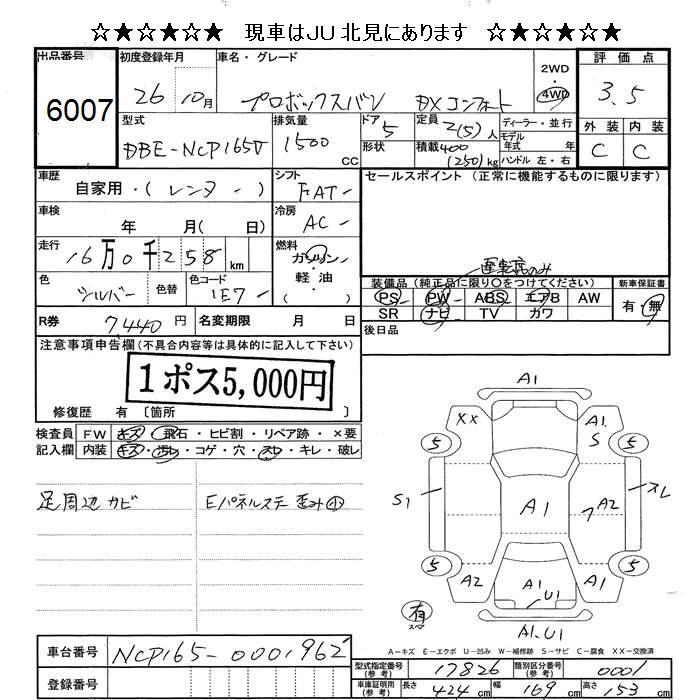 ☆★☆★☆★ 現車はJU北見にあります ☆★☆★☆★
出品番号 初度登録年月 車名・グレード 2WD 評価点
6007 26 10月 プロボックスバン DXコンフォート 4WD 3.5
型式 排気量 ドア 5 定員 2(5)人 ディーラー・並行 外装 内装
DBE-NCP165V 1500 CC 形状 積載 400 (250)kg モデル年式 年 ハンドル 左・右 C C
車歴 シフト セールスポイント (正常に機能するものに限ります)
自家用・(レンタ) FAT
車検 年 月( 日) 冷房 AC
走行 16万0千258km 燃料 ガソリン・軽油 ( )
運転席のみ
色 シルバー 色替 色コード 1E7
装備品 (純正品に限り○をつけてください) 新車保証書
PS PW ABS エアB AW 有・無
SR ナビ TV カワ
R券 7440円 名変期限 月 日 後日品
注意事項申告欄(不具合内容等は具体的に記入して下さい)
1ポス5,000円
修復歴 有 〔箇所
検査員 FW キズ・飛石・ヒビ割・リペア跡・×要
記入欄 内装 キズ・汚れ・コゲ・穴・スレ・キレ・破レ
足周辺 カビ Eパネルステ 歪み小
A1
XX A1 S
5 5
S1 A1 A2 スレ
7
5 5
A2 A1 U1 A1
有 スペア
A1.U1
A-キズ E-エクボ U-凹み W-補修跡 S-サビ C-腐食 XX-交換済
車台番号 NCP165-0001962
型式指定番号(参考) 17826 類別区分番号(参考) 0001
登録番号 車庫証明用(参考) 長さ 424cm 幅 169cm 高さ 153cm